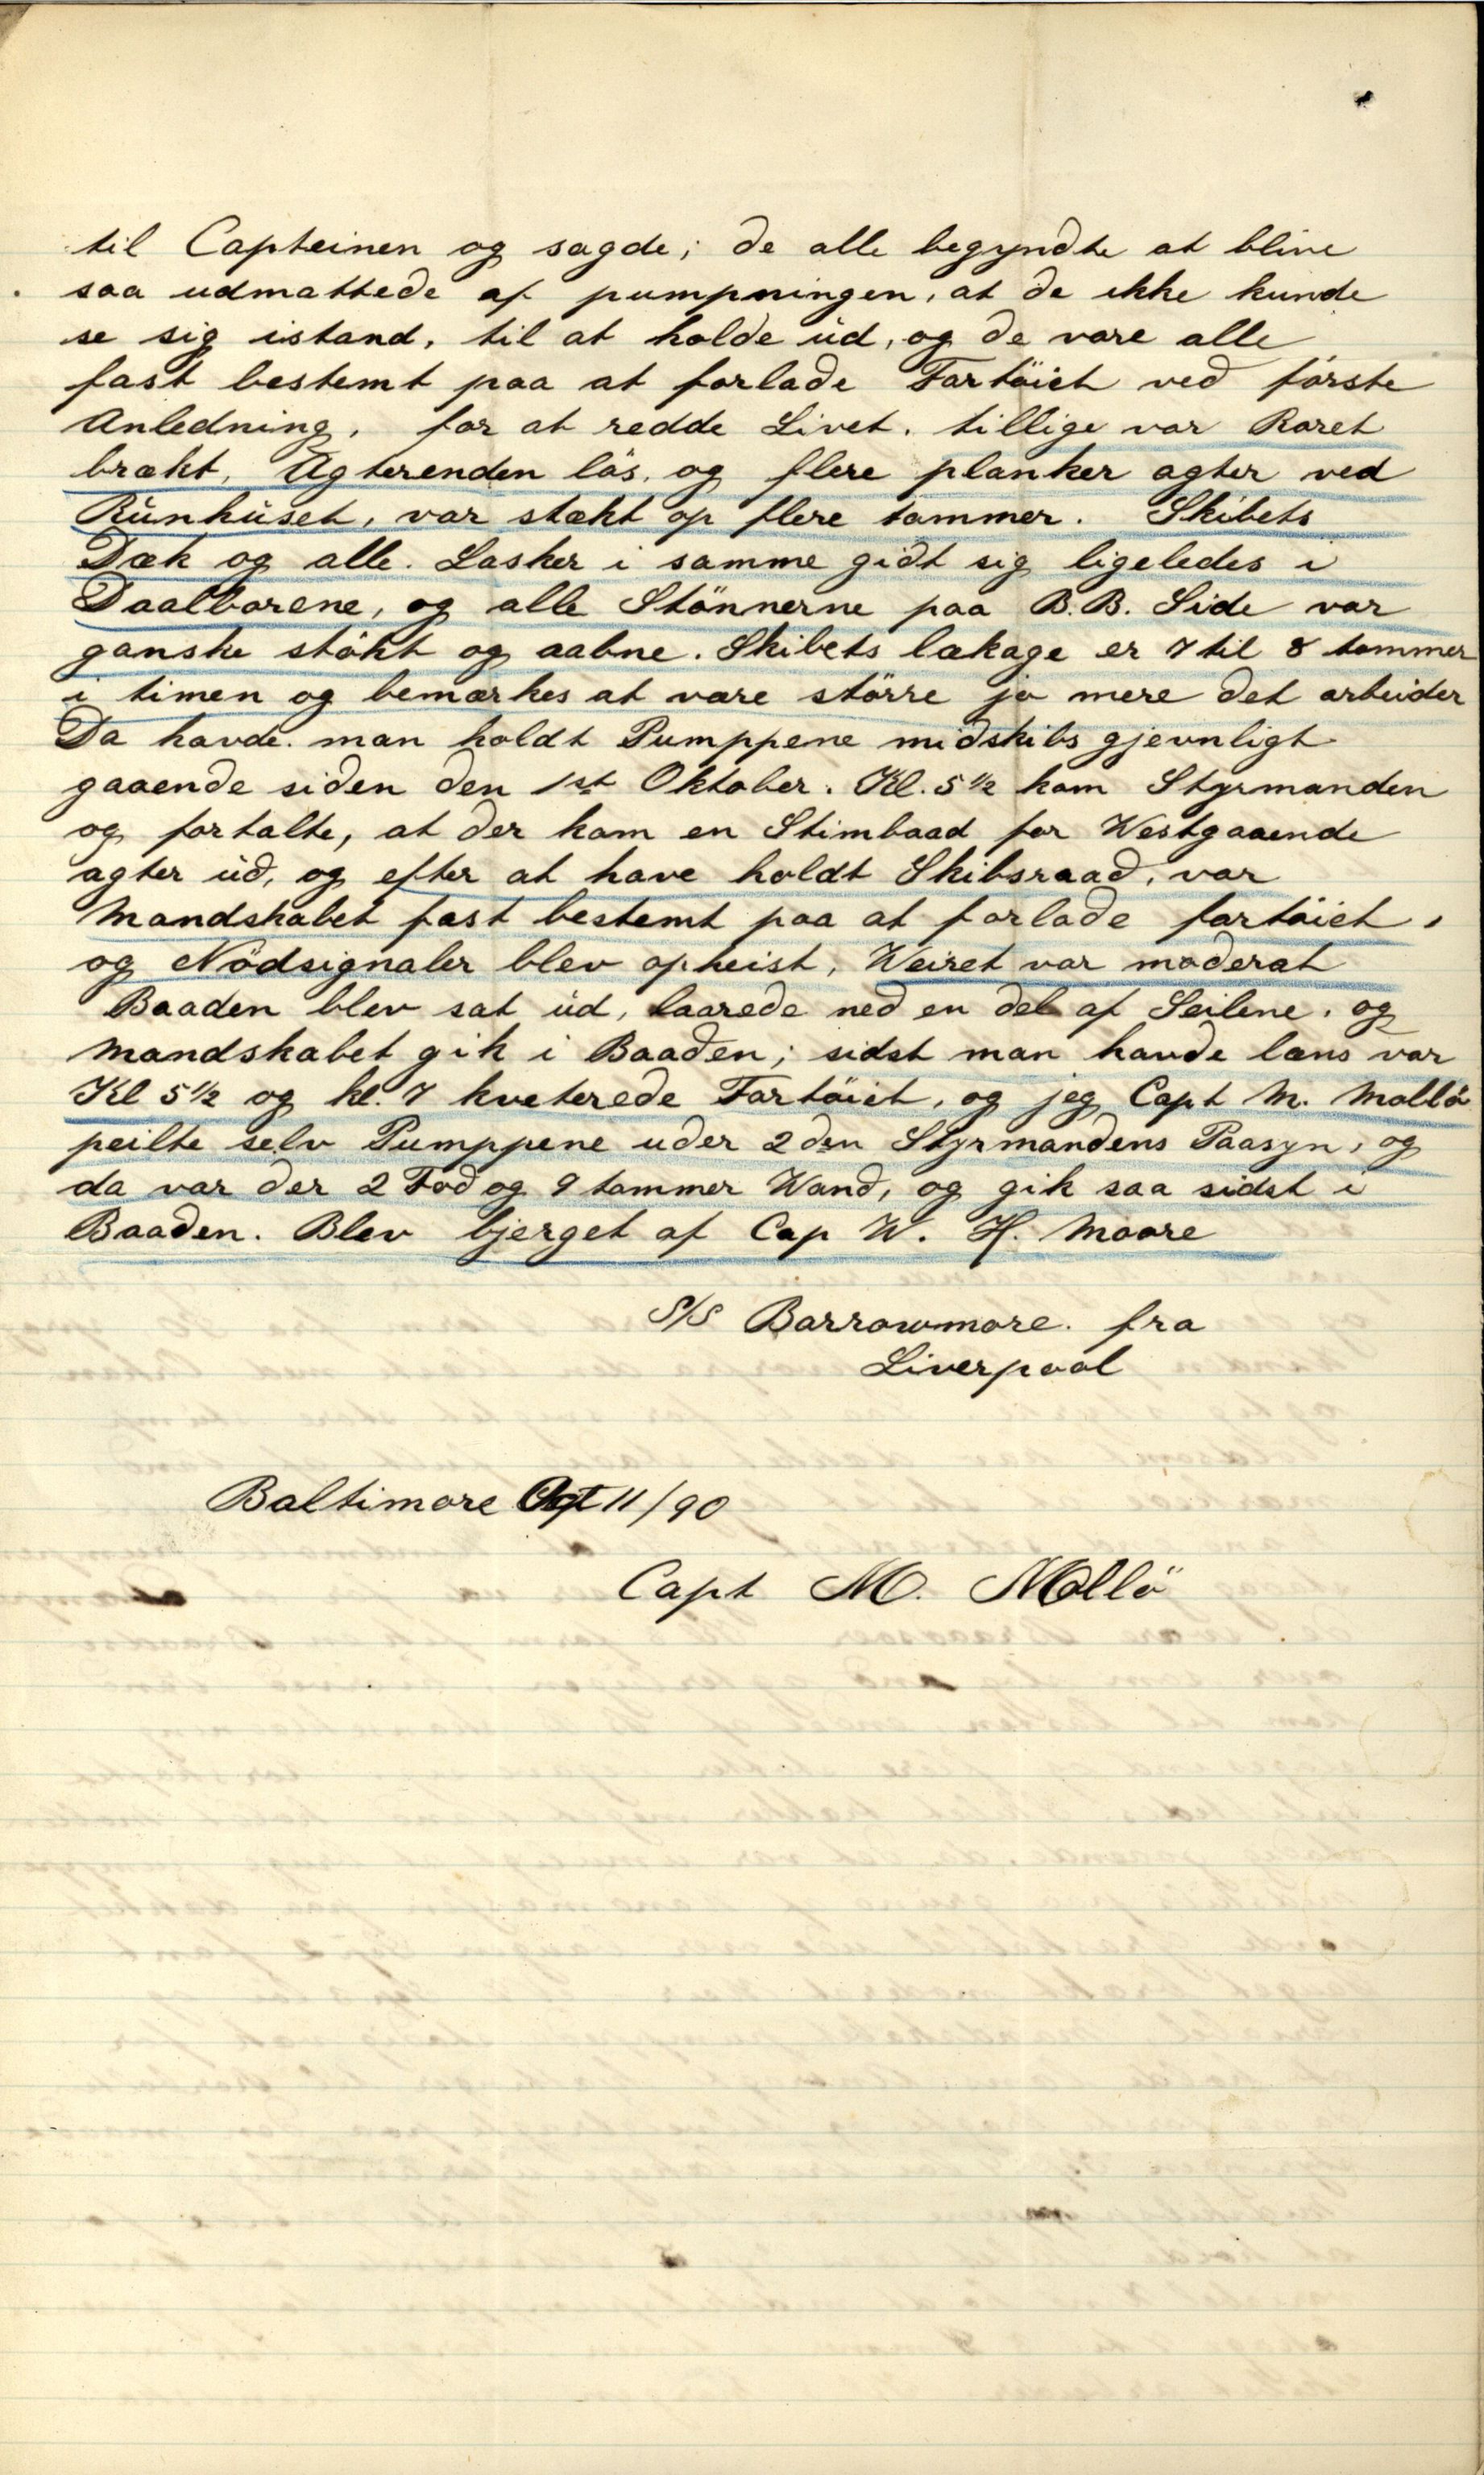 til Capteinen og sagde; de alle begyndte at blive
saa udmattede af pumpningen, at de ikke kunde
se sig istand, til at holde ud, og de vare alle
fast bestemt paa at forlade Fartöiet ved förste
Anledning, for at redde Livet. tillige var Roret
brækt, Agterenden lös, og flere planker agter ved
Rünhüset, var stækt op flere tommer. Skibets
Dæk og alle Lasker i samme gidt sig ligeledes i
Daalborene, og alle Stönnerne paa B.B. Side var
ganske stökt og aabne. Skibets lækage er 7 til 8 tommer
i timen og bemærkes at være större jo mere det arbeider
Da havde man holdt Pumppene midskibs gjevnligt
gaaende siden den 1st Oktober. Kl. 5½ kom Styrmanden
og fortalte, at der kom en Stimbaad for Westgaaende
agter ud, og efter at have holdt Skibsraad, var
Mandskabet fast bestemt paa at forlade fartöiet,
og Nödsignaler blev opheist, Weiret var moderat
Baaden blev sat ud, laarede ned en del af Seilene, og
Mandskabet gik i Baaden; sidst man havde læns var
Kl 5½ og kl. 7 kveterede Fartöiet, og jeg Capt M. Mollö
peilte selv Pumppene uder 2den Styrmandens Paasyn, og
da var der 2 Fod og 9 tommer Wand, og gik saa sidst i
Baaden. Blev bjerget af Cap W. H. Moore
S/S Barrowmore. fra
Liverpool
Baltimore Oct 11/90
Capt M. Mollö